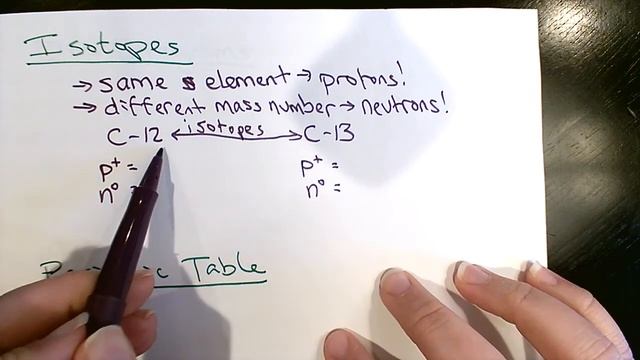 Isotopes
→ same element → protons!
→ different mass number → neutrons!
C-12 ← isotopes → C-13
p⁺ = p⁺ =
n⁰ = n⁰ =
Table